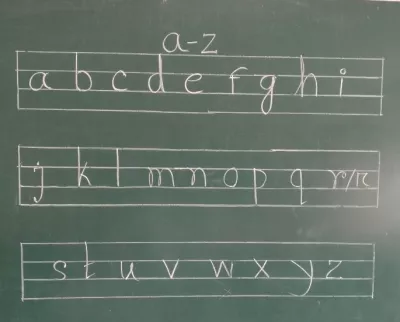 a-z
a b c d e f g h i
j k l m n o p q r/r
s t u v w x y z